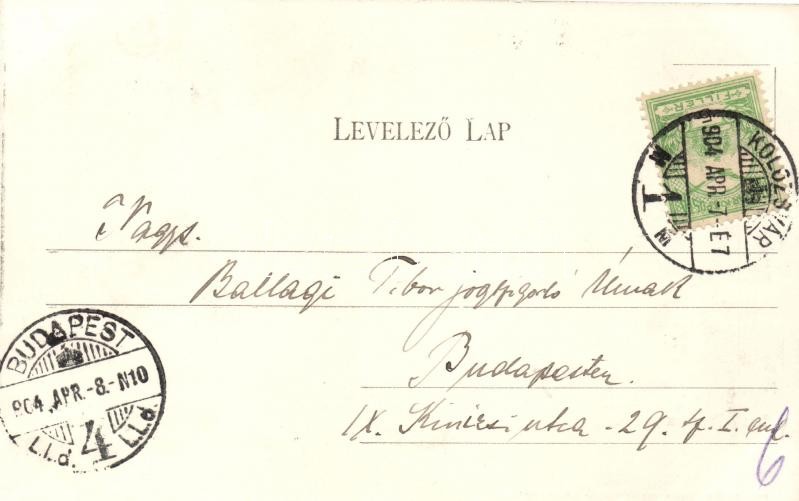 LEVELEZŐ LAP
FILLÉR
KOLOZSVÁR
904 APR.-7.-E7
1
Nags.
Ballagi Tibor joggyakorló Úrnak
Budapesten.
IX. Kinizsi utca - 29. sz. I. em.
6
BUDAPEST
904 .APR.-8.-N10
4